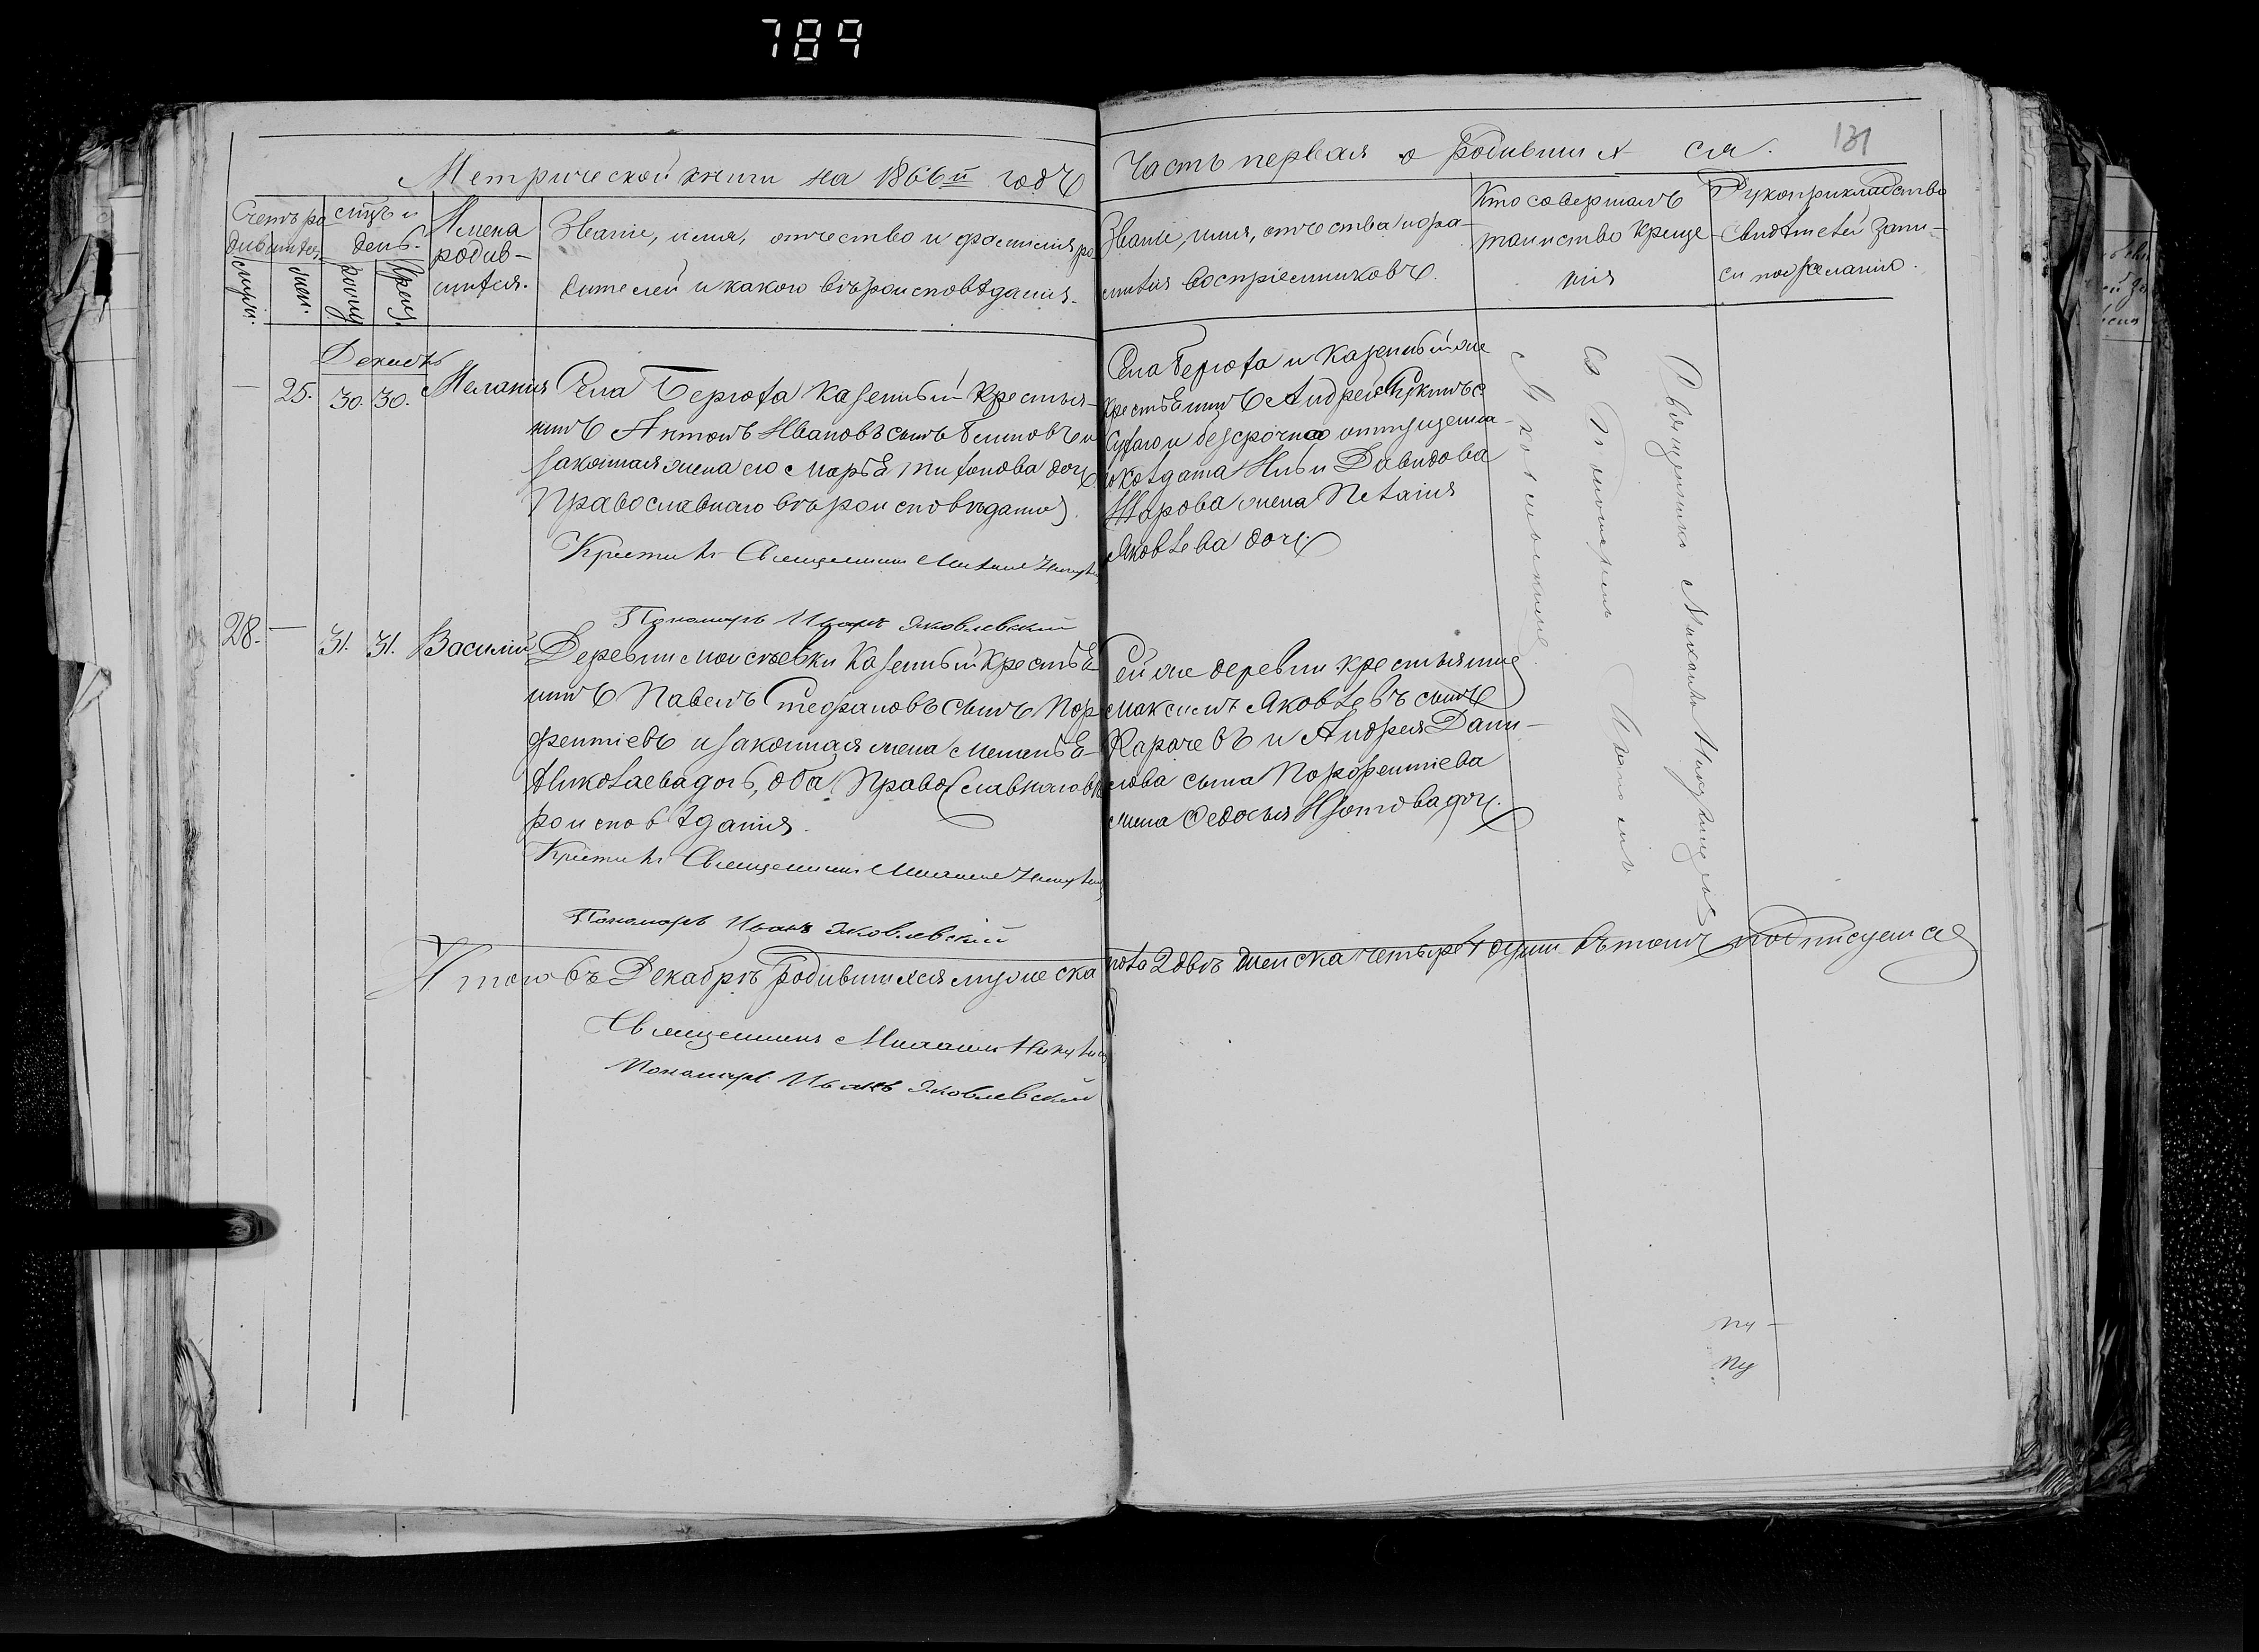 789
Метрической книги на 1866й годъ
Часть первая о родившихся.
131
Счетъ родившихся
мѣсяцъ и день
Имена родившихся.
Званіе, имя, отчество и фамилія родителей и какого вѣроисповѣданія.
Званіе, имя, отчества и фамилія воспріемниковъ.
Кто совершалъ таинство крещенія
Рукоприкладство свидѣтелей записи по желанію.
Декабрь
— 25. 30. 30. Меланія
Села Берюха казенный крестья-
нинъ Антонъ Ивановъ сынъ и
законная жена его Марья дочь
Православнаго вѣроисповѣданія
Крестилъ Священникъ Михаилъ
Пономарь Иванъ Яковлевский
казенный же
крестьянинъ Андрей
и безсрочно отпущенна-
го солдата Давидова
жена Пелагія
Яковлева дочь
28. — 31. 31. Василий
Деревни Моисѣевки казенный крестья
нинъ Павелъ Стефановъ сынъ Пор
фентіевъ и законная жена Меланья
Николаева дочь, оба Православнаго вѣ
роисповѣданія.
Крестилъ Священникъ Михаилъ
Пономарь Иванъ Яковлевский
Сей же деревни крестьянинъ
Максимъ Яковлевъ сынъ
Карачевъ и Андрея Дани-
лова сына Порфентіева
жена Федосья Изотова дочь.
Священникъ Михаилъ
Итого въ Декабрѣ родившихся мужеска пола 2 двѣ женска четыре 4 души въ томъ подписуемся
Священникъ Михаилъ
Пономарь Иванъ Яковлевский